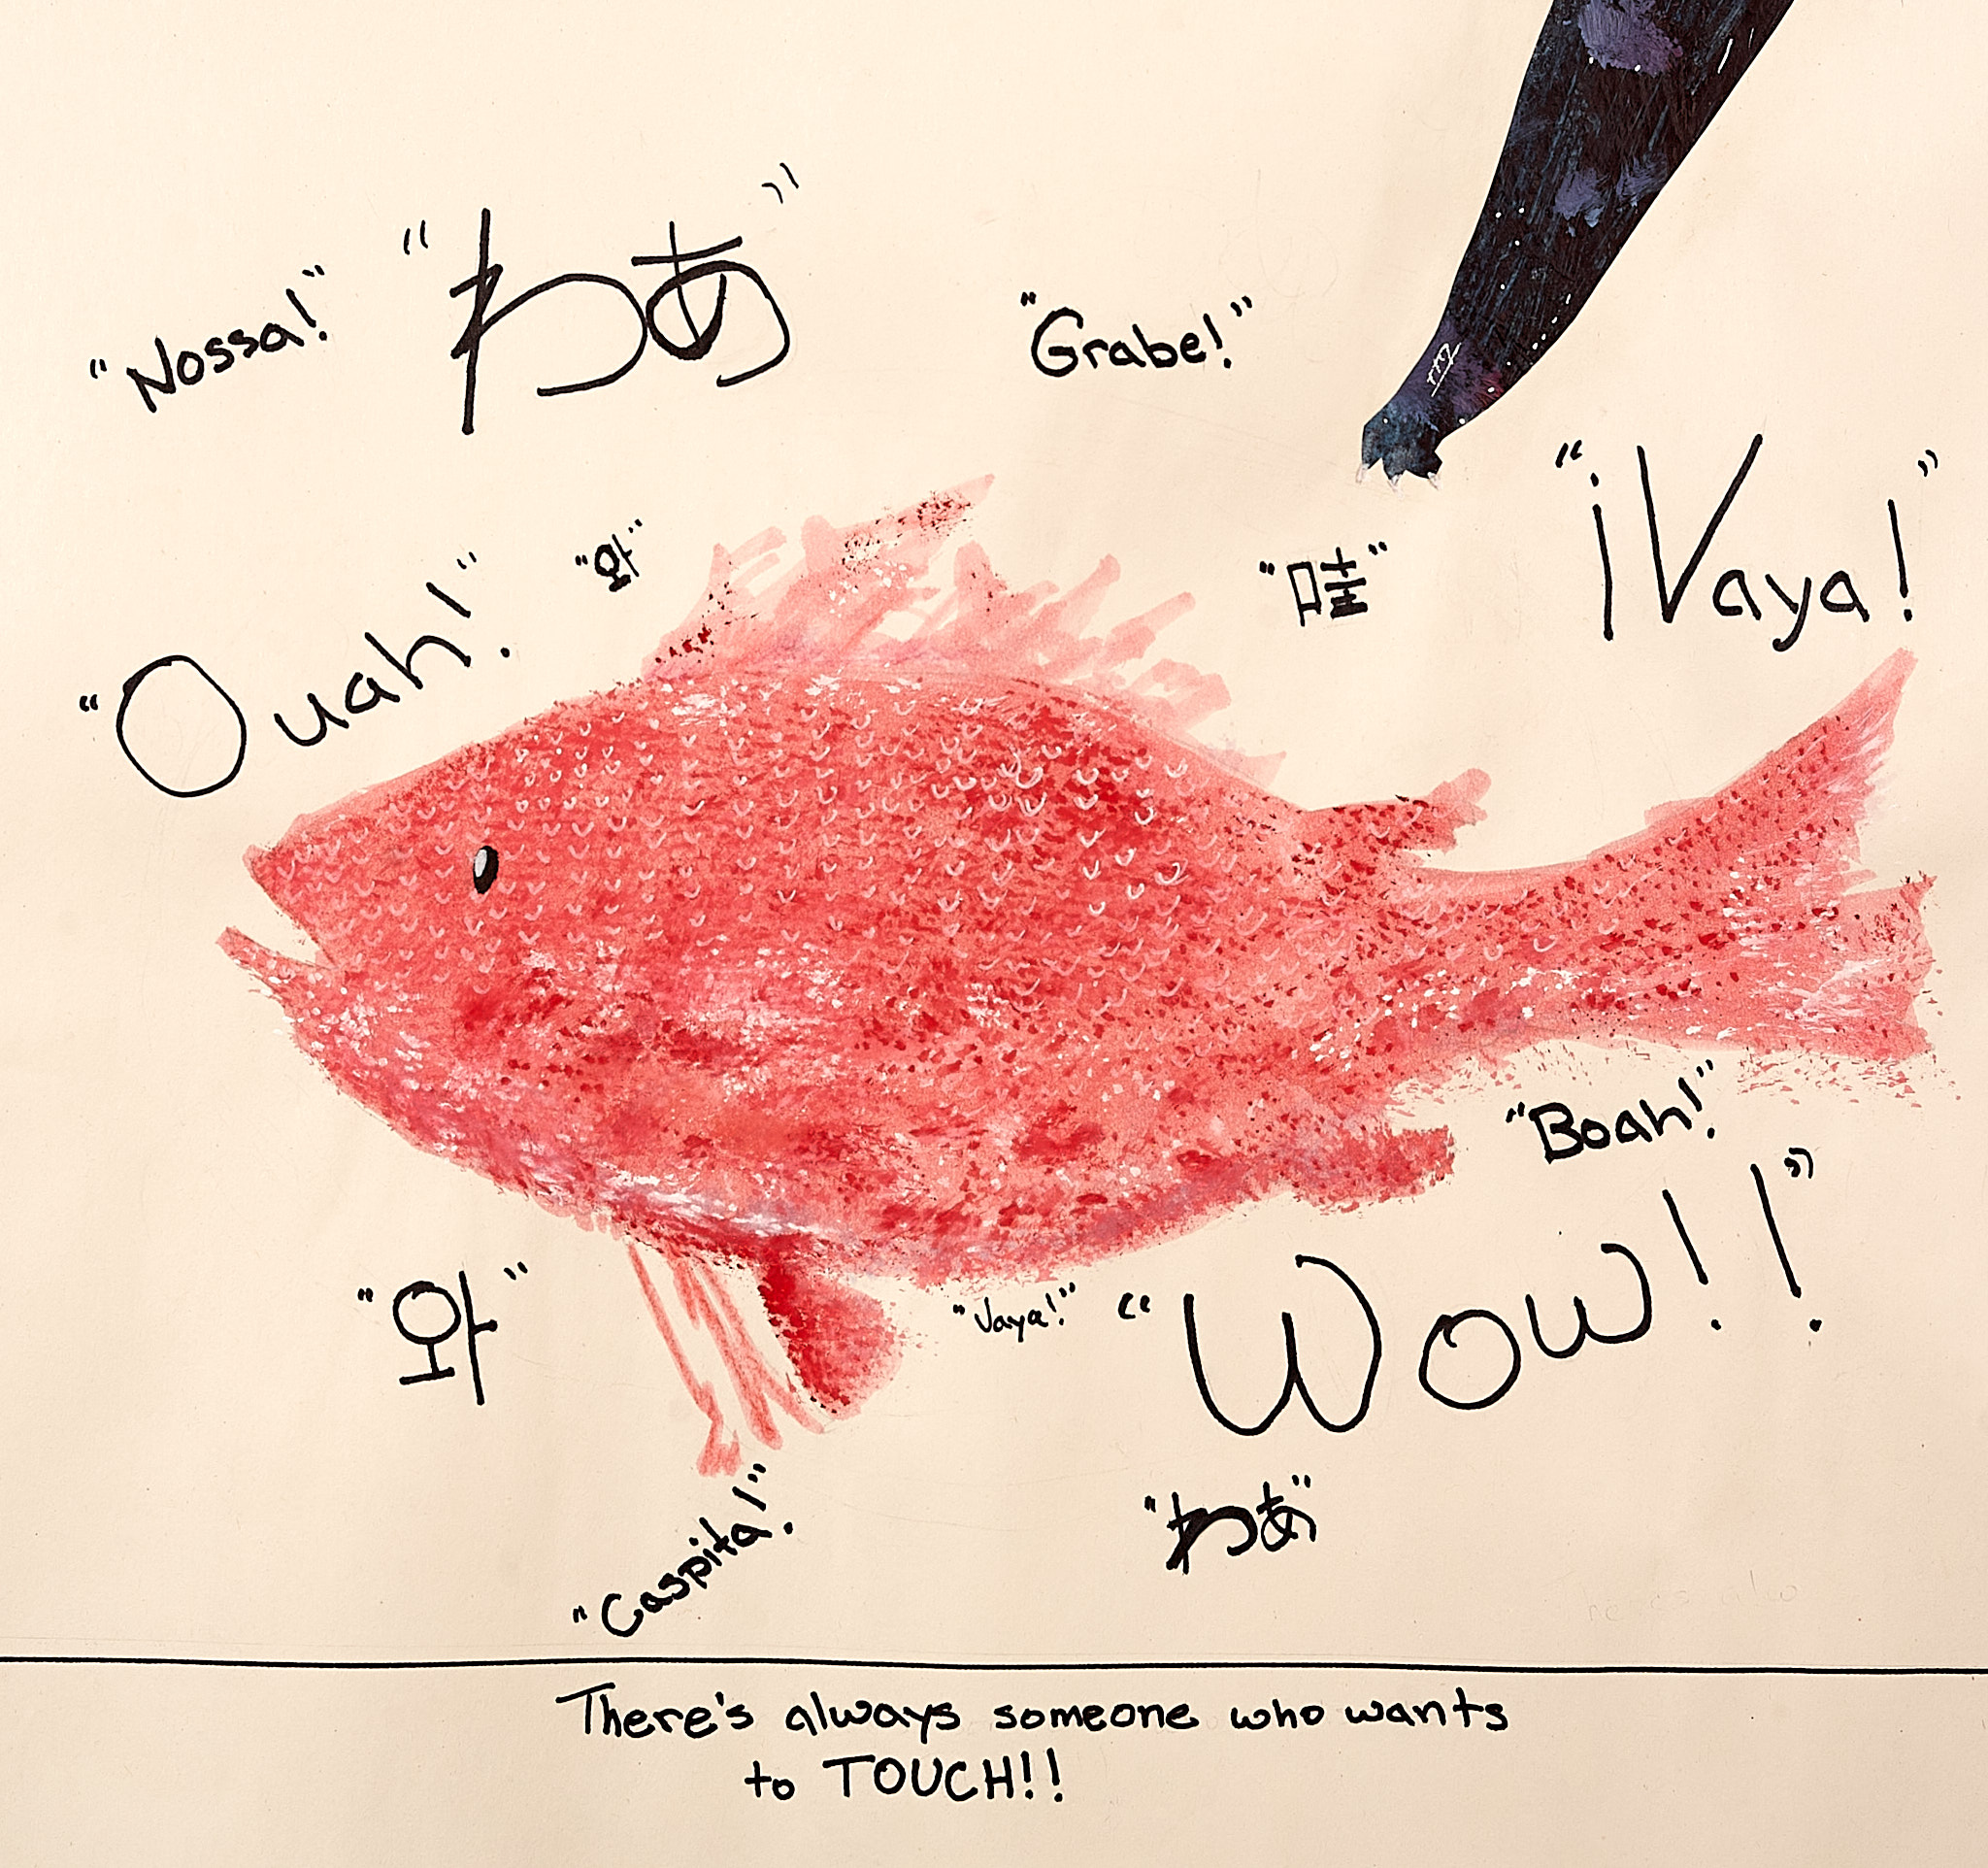 "Nossa!"
"わあ"
"Grabe!"
"¡Vaya!"
"Ouah!"
"와"
"哇"
"Boah!"
"와"
"Vaya!"
"Wow!!"
"Caspita!"
"わあ"
There's always someone who wants
to TOUCH!!